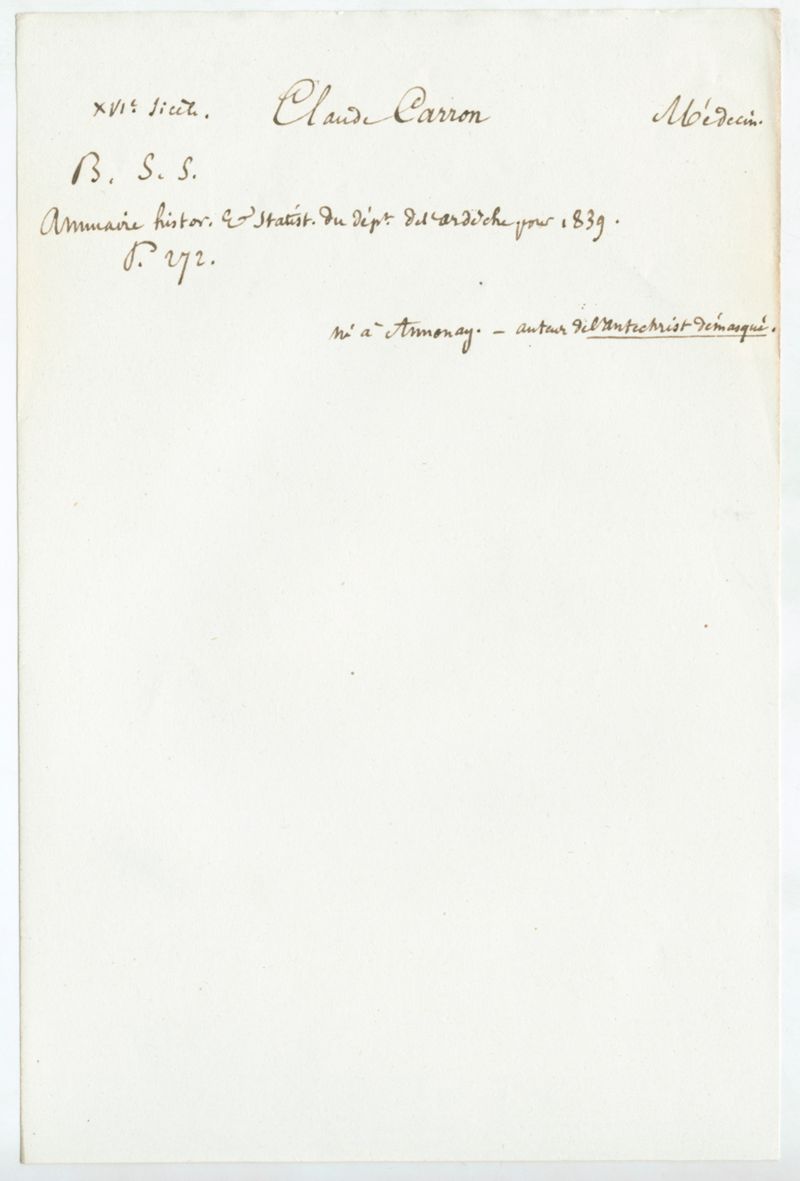 XVIe siècle. Claude Carron Médecin.
B. S. S.
Annuaire histor. & statist. du dépt. de l'ardèche pour 1839.
P. 272.
né à Annonay. - auteur de l'antechrist démasqué.